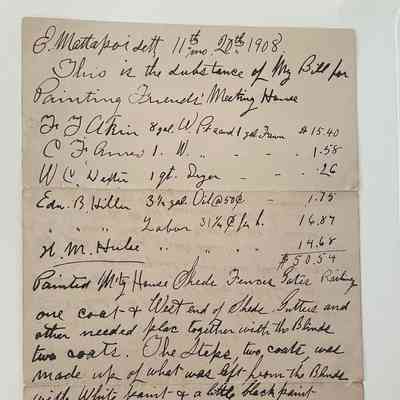 E. Mattapoisett 11th mo. 27th 1908.
This is the substance of My Bill for
Painting Friends' Meeting House
F T Akin 8 gal. W. Pt and 1 gal. Fawn $15.40
C F 1. W. " - - - 1.58
W C. 1 qt. Dryer - - - .26
Edn. B. Hiller 3½ gal. Oil @ 50¢ - - 1.75
" " " Labor 31¼ ¢ per h. - 16.87
H. M. Hulse " " " 14.68
$50.54
Painted Mtg House Sheds Fences Gates Railing
one coat & West end of Sheds. Gutters and
other needed plac together with the Blinds
two coats. The Steps, two, coats, was
made up of what was left from the Blinds
with White paint & a little black paint